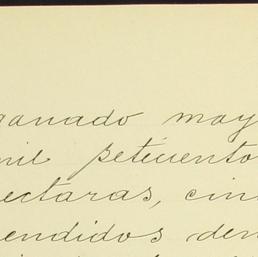 ganado may
mil peticiento
ectaras, cin
endidos den